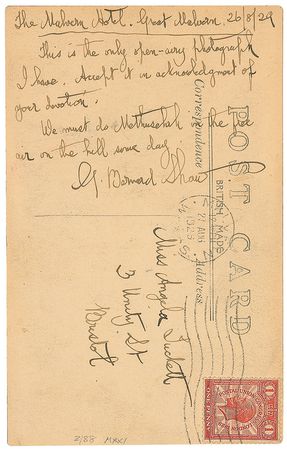 The Malvern Hotel. Great Malvern. 26/8/29
This is the only open-airy photograph
I have. Accept it in acknowledgment of
your devotion.
We must do Methuselah in the free
air on the hill some day.
G. Bernard Shaw
POST CARD
Correspondence
BRITISH MADE
Address
27 AUG
1929
Miss Angela Tuckett
3 Unity St
Bristol
POSTAL UNION CONGRESS
LONDON 1929
ONE PENNY
1
1
2/88 MXXI